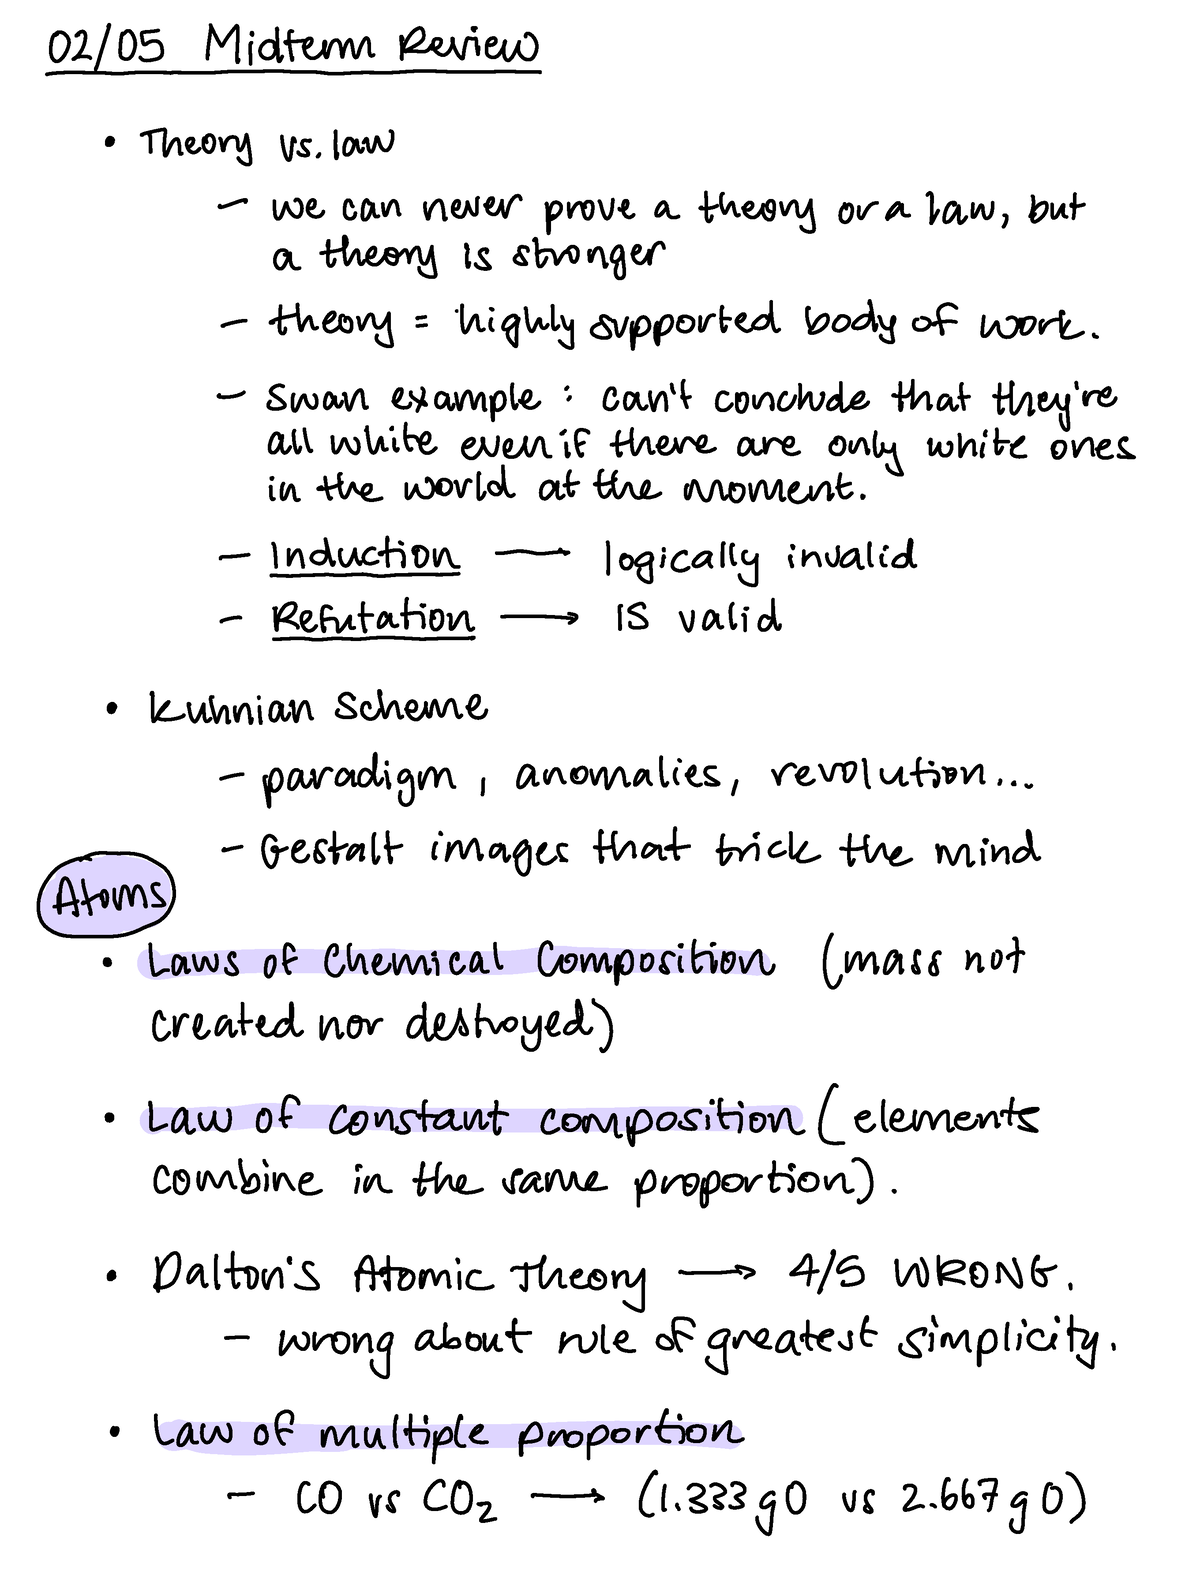 02/05 Midterm Review
• Theory vs. law
– we can never prove a theory or a law, but
a theory is stronger
– theory = highly supported body of work.
– Swan example : can't conclude that they're
all white even if there are only white ones
in the world at the moment.
– Induction — logically invalid
– Refutation → IS valid
• Kuhnian Scheme
– paradigm, anomalies, revolution...
– Gestalt images that trick the mind
Atoms
• Laws of Chemical Composition (mass not
created nor destroyed)
• Law of constant composition (elements
combine in the same proportion).
• Dalton's Atomic Theory → 4/5 WRONG.
– wrong about rule of greatest simplicity.
• Law of multiple proportion
– CO vs CO₂ → (1.333 g O vs 2.667 g O)